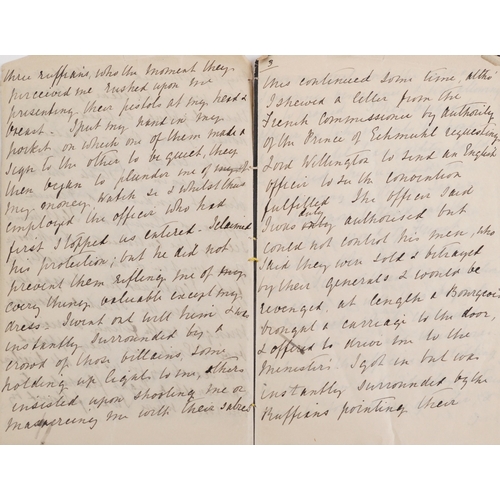 three ruffians, who the moment they
perceived me rushed upon me
presenting their pistols at my head &
breast. I put my hand in my
pocket on which one of them made a
sign to the other to be quiet, they
then began to plunder me of
my money, watch &c & whilst thus
employed the officer who had
first stopped us entered. I claimed
his protection, but he did not
prevent them rifling me of my
every thing valuable except my
dress. I went out with him & was
instantly surrounded by a
crowd of those villains, some
holding up light to me, others
insisted upon shooting me or
massacreing me with their sabres
3
this continued some time, altho'
I shewed a letter from the
French Commissioner by authority
of the Prince of Eckmuhl requesting
Lord Wellington to send an English
officer to see the convention
fulfilled. The officer said
I was duly authorised but
could not control his men, who
said they were sold & betrayed
by their Generals & would be
revenged. at length a Bourgeois
brought a carriage to the door,
& offered to drive me to the
Minister's I got in but was
instantly surrounded by the
Ruffians pointing their